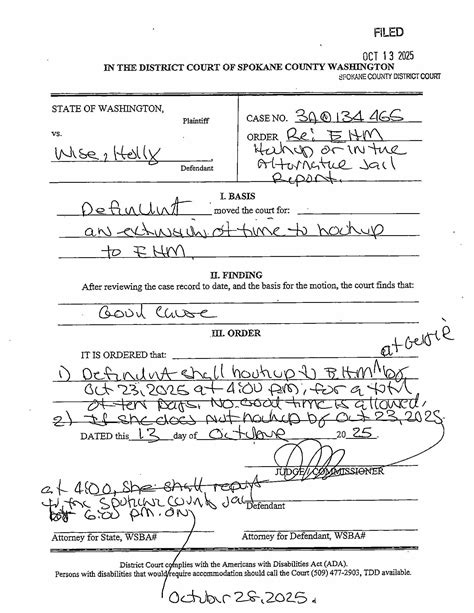 FILED
OCT 13 2025
IN THE DISTRICT COURT OF SPOKANE COUNTY WASHINGTON
SPOKANE COUNTY DISTRICT COURT
STATE OF WASHINGTON,
Plaintiff
vs.
Wise, Holly,
Defendant
CASE NO. 3A0134465
ORDER Re: EHM
Hookup or in the
Alternative Jail
Report.
I. BASIS
Defendant moved the court for:
an extension of time to hookup
to EHM.
II. FINDING
After reviewing the case record to date, and the basis for the motion, the court finds that:
Good cause
III. ORDER
IT IS ORDERED that:
at
1) Defendant shall hookup to EHM by
Oct 23, 2025 at 4:00 PM, for a total
of ten days. No good time is allowed.
2) If she does not hookup by Oct 23, 2025
DATED this 13 day of October 2025.
JUDGE / COMMISSIONER
at 4:00, she shall report
to the Spokane County Jail
by 6:00 PM. on
October 28, 2025.
Defendant
Attorney for State, WSBA#
Attorney for Defendant, WSBA#
District Court complies with the Americans with Disabilities Act (ADA).
Persons with disabilities that would require accommodation should call the Court (509) 477-2903, TDD available.